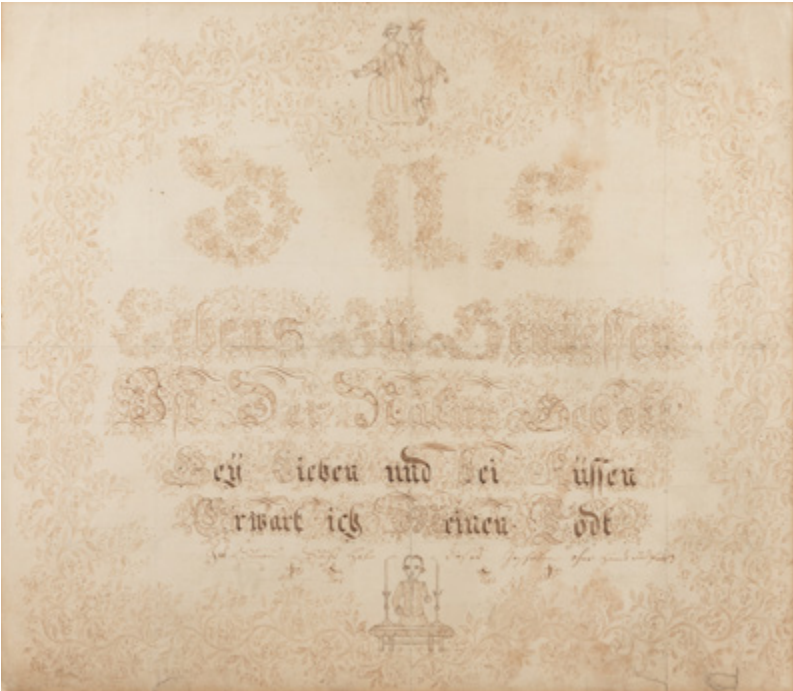 Das
Lebens Zu Geniessen
Ist Der Natur Geboth
Bey Lieben und Bei Küssen
Erwart ich Meinen Todt